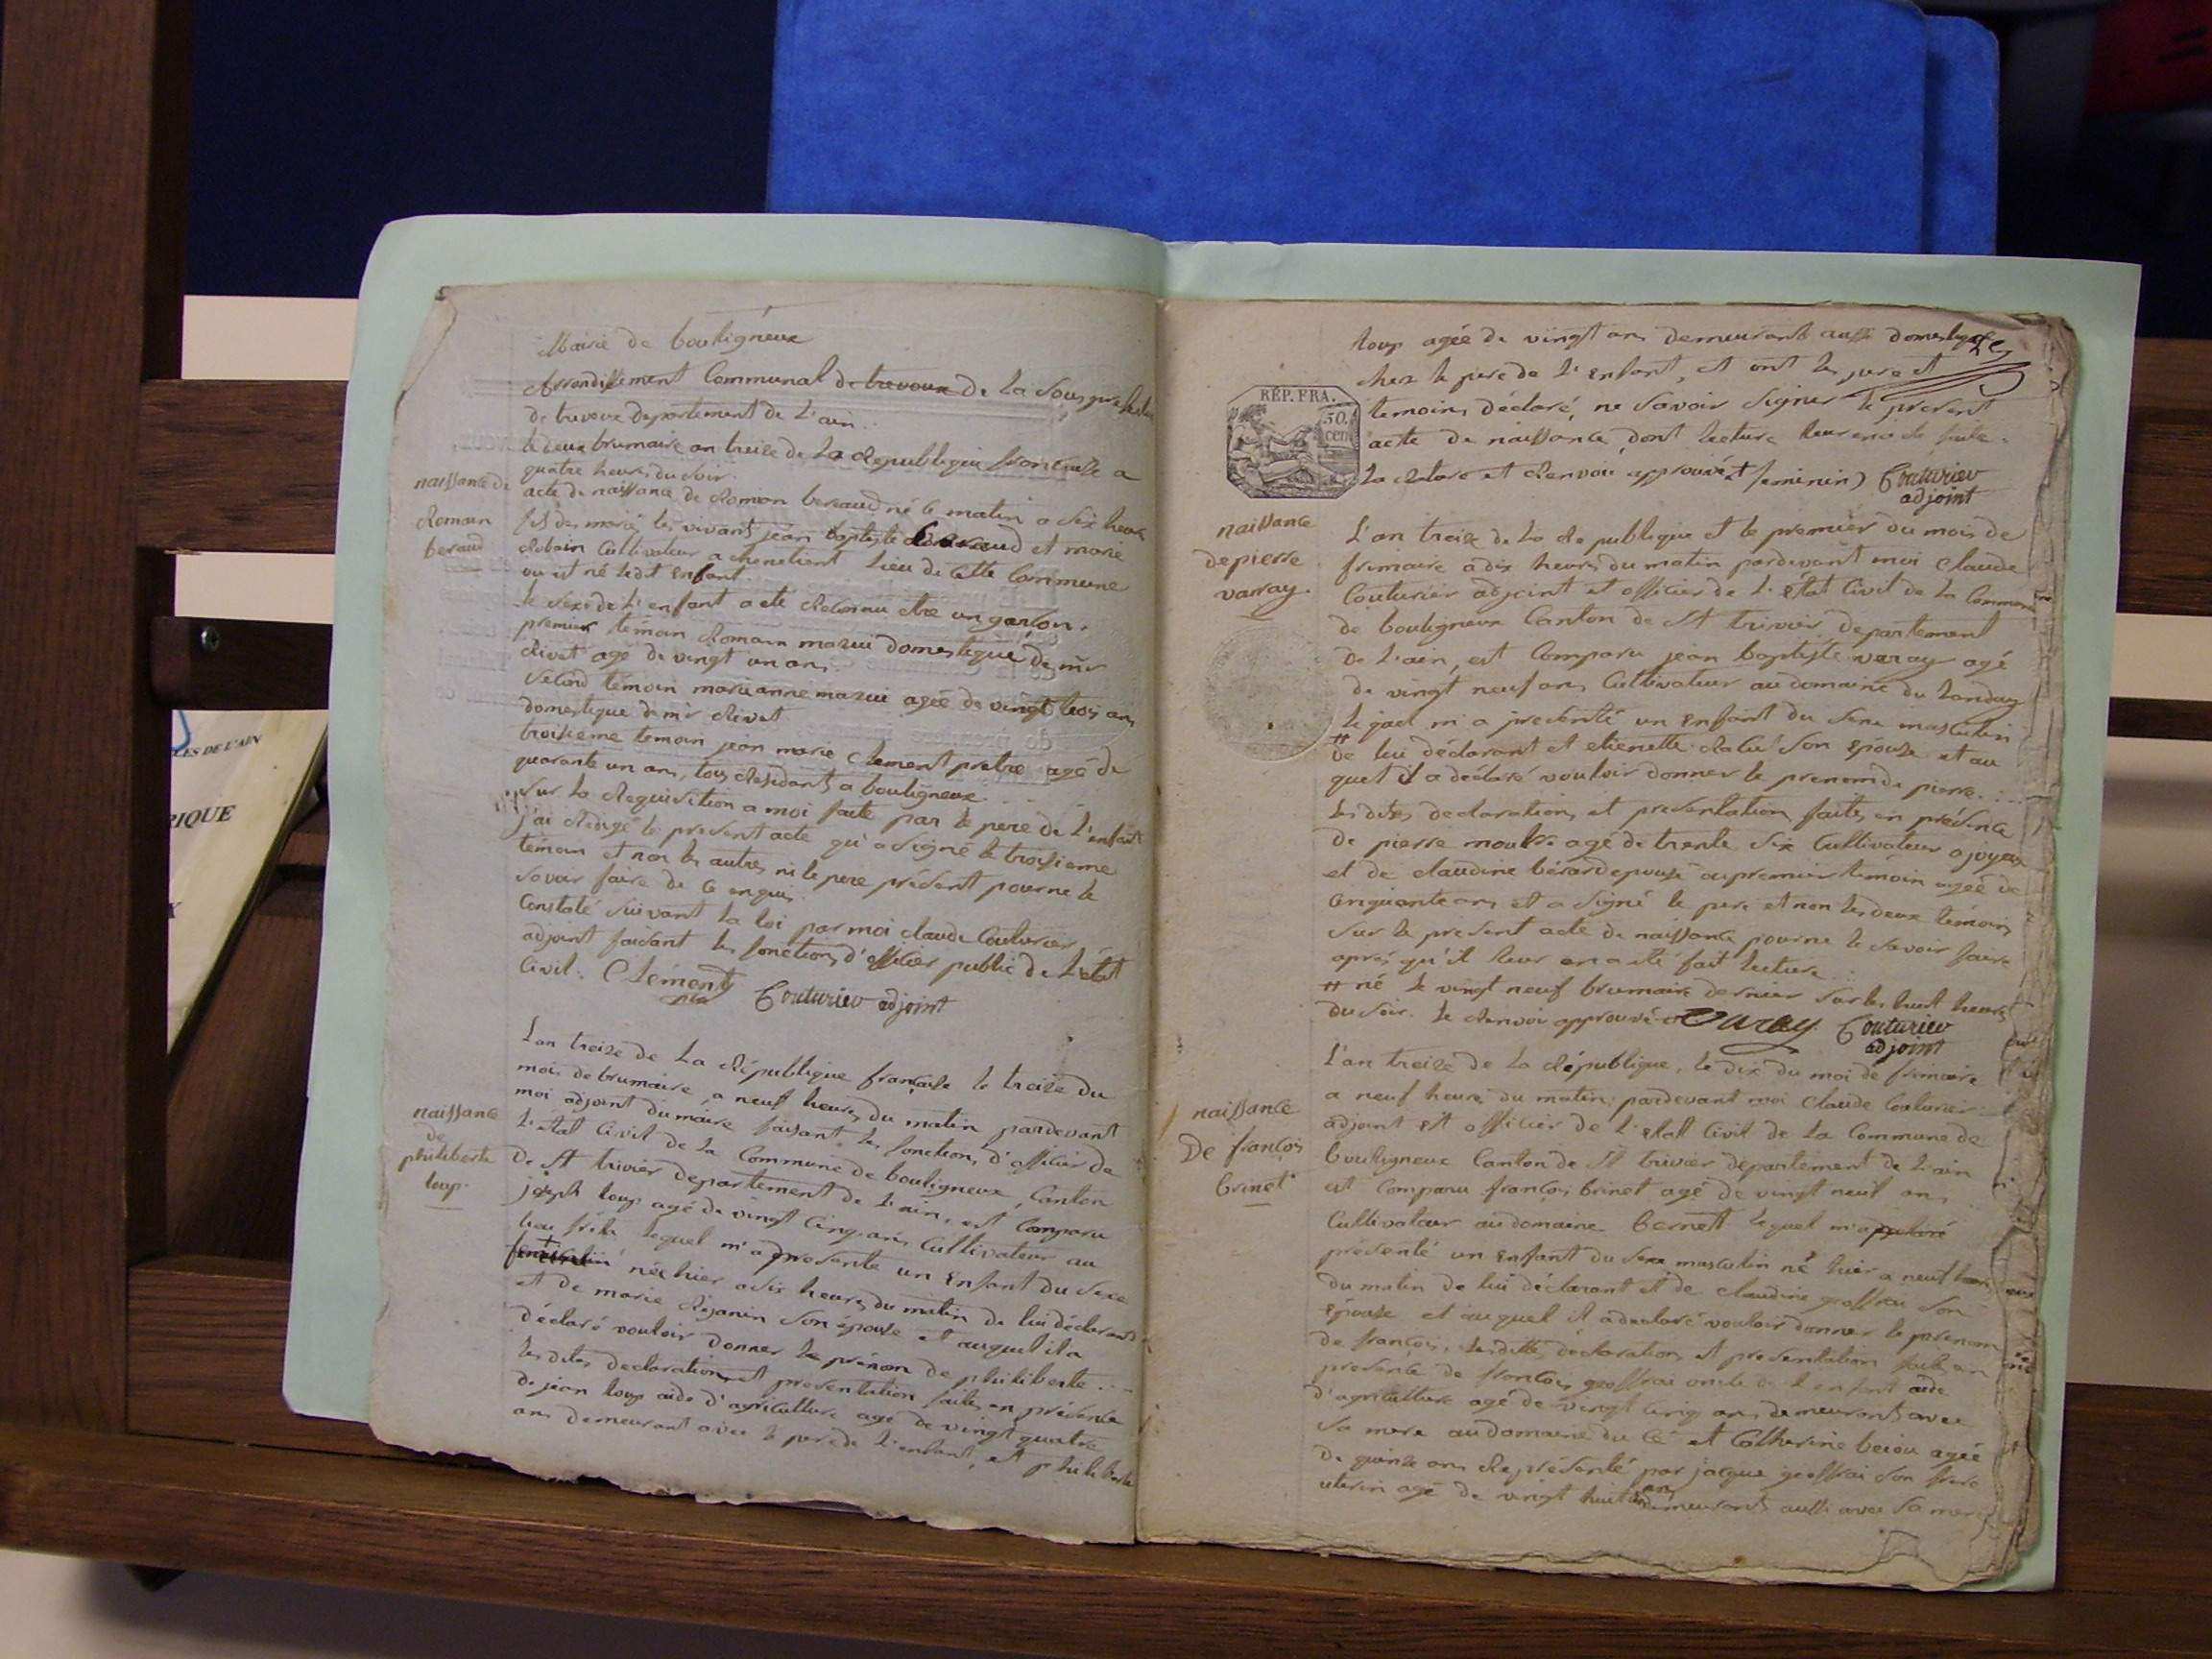 Mairie de bouligneux
Arrondissement Communal de trevoux de la sous prefecture
de trevoux departement de l'ain.
le deux brumaire an treize de la Republique francaise a
quatre heures du soir.
naissance de
Romain
beraud
acte de naissance de Romain beraud né le matin a six heures
fils des mariés les vivants jean baptiste beraud et marie
Robain Cultivateur a lieu de cette Commune
ou est né ledit enfant.
le sexe de l'enfant a eté Reconnu etre un garçon.
premier témoin Romain mazui domestique de mr
Rivat agé de vingt un ans.
second témoin marianne mazui agée de vingt trois ans
domestique de mr Rivat
troisieme temoin jean marie Clement pretre agé de
quarante un ans, tous Residants a bouligneux
sur la Requisition a moi faite par le pere de l'enfant
j'ai Redigé le present acte qu'a signé le troisieme
témoin et non les autres ni le pere présent pour ne le
savoir faire de ce enquis.
Constaté suivant la loi par moi claude Couturier
adjoint faisant les fonctions d'officier public de l'état
Civil. Clement Couturier adjoint
naissance
de
philiberte
loup.
L'an treize de la République française le treize du
mois de brumaire, a neuf heures du matin pardevant
moi adjoint du maire faisant les fonctions d'officier de
l'état Civil de la Commune de bouligneux, Canton
de St trivier departement de l'ain, est Comparu
joseph loup agé de vingt Cinq ans Cultivateur au
lieu lequel m'a presenté un enfant du sexe
+ née hier a six heures du matin de lui déclarant
et de marie Rejanin son épouse et auquel il a
déclaré vouloir donner le prénom de philiberte.
les dites declaration et presentation faites en présence
de jean loup aide d'agriculture agé de vingt quatre
ans demeurant avec le pere de l'enfant, et philiberte
loup agée de vingt ans demeurant aussi domestique
chez le pere de l'enfant, et ont les pere et
temoins déclaré, ne savoir signer le present
acte de naissance, dont lecture leur en a eté faite.
la rature et Renvoi approuvé + feminin) Couturier
adjoint
RÉP. FRA.
50.
cen
naissance
de pierre
varray.
L'an treize de la Republique et le premier du mois de
frimaire a dix heures du matin pardevant moi claude
Couturier adjoint et officier de l'état Civil de la Commune
de bouligneux Canton de St trivier departement
de l'ain, est Comparu jean baptiste varay agé
de vingt neuf ans Cultivateur au domaine du
lequel m'a presenté un enfant du sexe masculin
# de lui déclarant et etienette son épouse et au
quel il a déclaré vouloir donner le prenom de pierre.
les dites declaration et presentation faites en présence
de pierre agé de trente six Cultivateur a joyeux
et de claudine bérard epouse du premier témoin agée de
Cinquante ans et a signé le pere et non les deux témoins
sur le present acte de naissance pour ne le savoir faire
après qu'il leur en a eté fait lecture.
# né le vingt neuf brumaire dernier sur les huit heures
du soir. le Renvoi approuvé varay Couturier
adjoint
naissance
De françois
brinet
L'an treize de la République, le dix du moi de frimaire
a neuf heures du matin, pardevant moi claude Couturier
adjoint et officier de l'etat Civil de la Commune de
bouligneux Canton de St trivier departement de l'ain
est Comparu françois brinet agé de vingt neuf ans
Cultivateur au domaine bernett lequel m'a
présenté un enfant du sexe masculin né hier a neuf heures
du matin de lui déclarant et de claudine geoffrai son
épouse et auquel il a declaré vouloir donner le prenom
de françois, lesdittes déclaration et presentation faite en
presence de françois geoffrai oncle de l'enfant aide
d'agriculture agé de vingt Cinq ans demeurant avec
sa mere au domaine du et Catherine agée
de quinze ans Représenté par jacque geoffrai son frere
uterin agé de vingt huit ans demeurants aussi avec sa mere